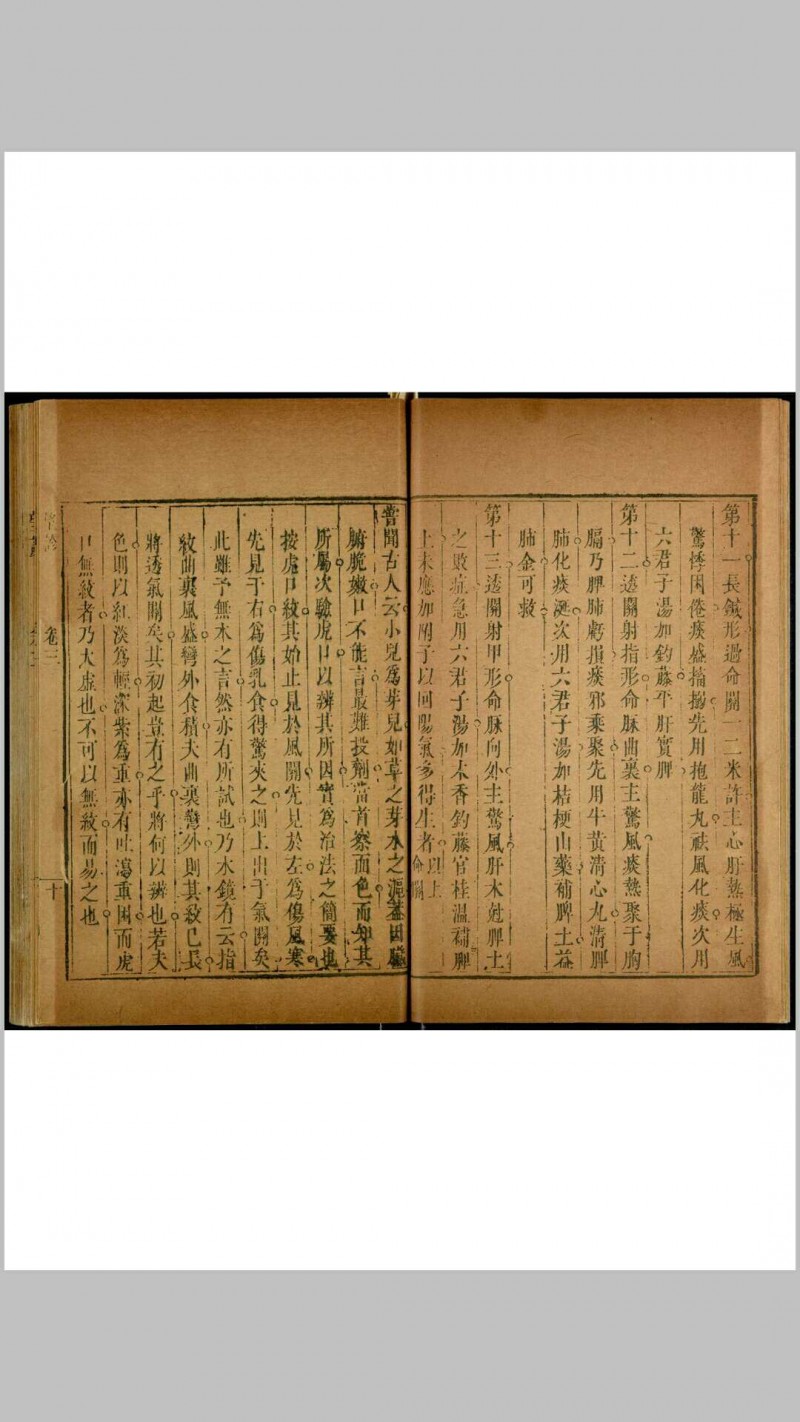 第十一長鍼形過命關一二米許主心肝熱極生風
驚悸困倦痰盛搐搦先用抱龍丸祛風化痰次用
六君子湯加釣藤平肝實脾
第十二透關射指形命脉曲裏主驚風痰熱聚于胸
膈乃脾肺虧損痰邪乘聚先用牛黃清心丸清脾
肺化痰涎次用六君子湯加桔梗山藥補脾土益
肺金可救
第十三透關射甲形命脉向外主驚風肝木尅脾土
之敗症急用六君子湯加木香釣藤官桂温補脾
土未應加附子以回陽氣多得生者以上命關
嘗聞古人云小兒爲芽兒如草之芽水之漚蓋因臟
腑脆嫩口不能言最難投劑當首察面色而知其
所屬次驗虎口以辨其所因實爲治法之簡要也
按處口紋其始止見於風關先見於左爲傷風寒
先見于右爲傷乳食得驚夾之則上出于氣關矣
此雖予無本之言然亦有所試也乃水鏡有云指
紋曲裏風盛彎外食積夫曲裏彎外則其紋已長
將透氣關矣其初起豈有之乎將何以辨也若夫
色則以紅淡爲輕深紫爲重亦有吐瀉重困而虎
口無紋者乃大虛也不可以無紋而易之也
卷三
十